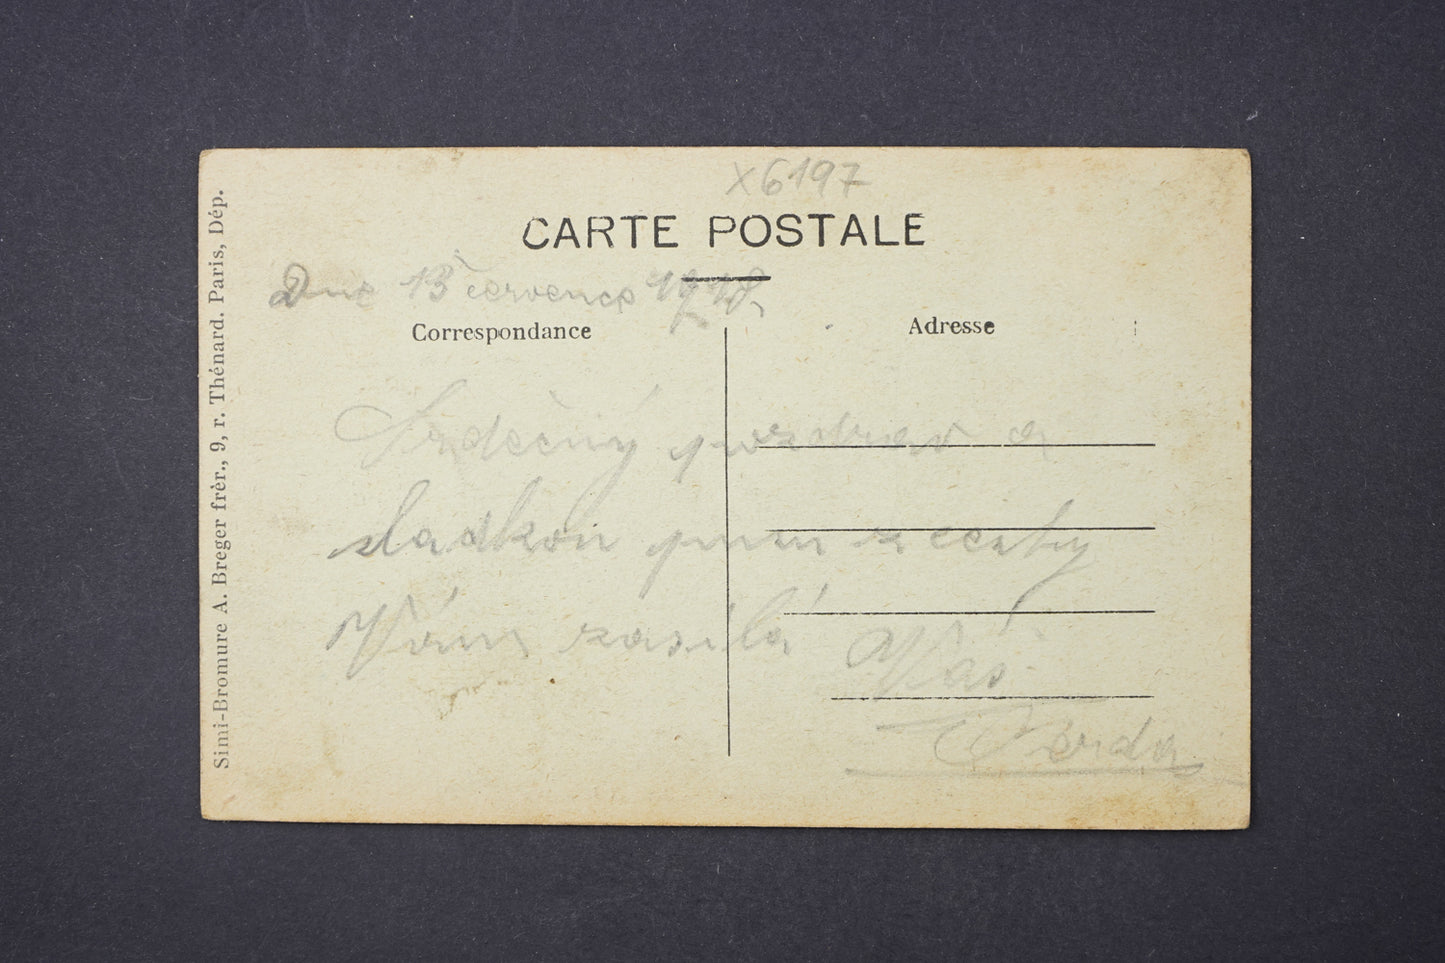 X6197
CARTE POSTALE
Dne 13 července 1918.
Correspondance
Adresse
Srdečný pozdrav a
sladkou pusu
Vám zasílá Váš
Ferda
Simi-Bromure A. Breger frèr., 9, r. Thénard. Paris, Dép.